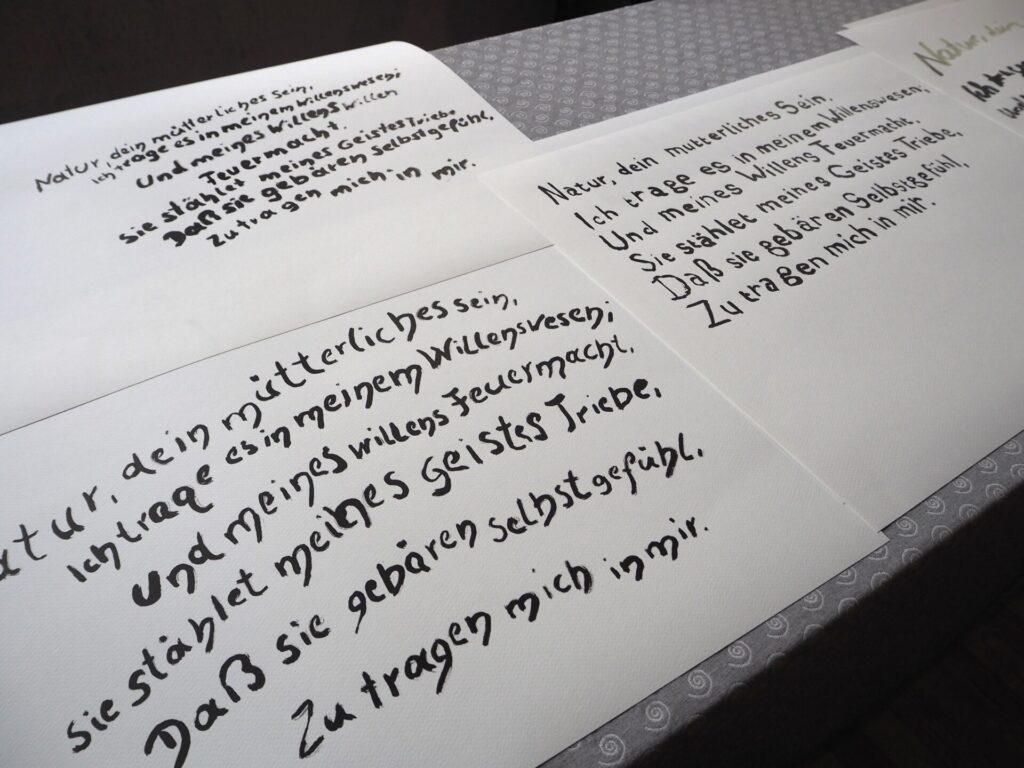 Natur, dein mütterliches Sein,
Ich trage es in meinem Willenswesen;
Und meines Willens Willen
Feuermacht.
sie stählet meines Geistes Triebe.
Daß sie gebären Selbstgefühl,
Zu tragen mich in mir.
Natur, dein mütterliches Sein.
Ich trage es in meinem Willenswesen;
Und meines Willens Feuermacht,
Sie stählet meines Geistes Triebe,
Daß sie gebären Selbstgefühl,
Zu tragen mich in mir.
Natur, dein
Ich trage
Und
atur, dein mütterliches sein,
Ich trage es in meinem Willenswesen;
Und meines willens Feuermacht.
sie stählet meines Geistes Triebe,
Daß sie gebären selbstgefühl.
Zu tragen mich in mir.